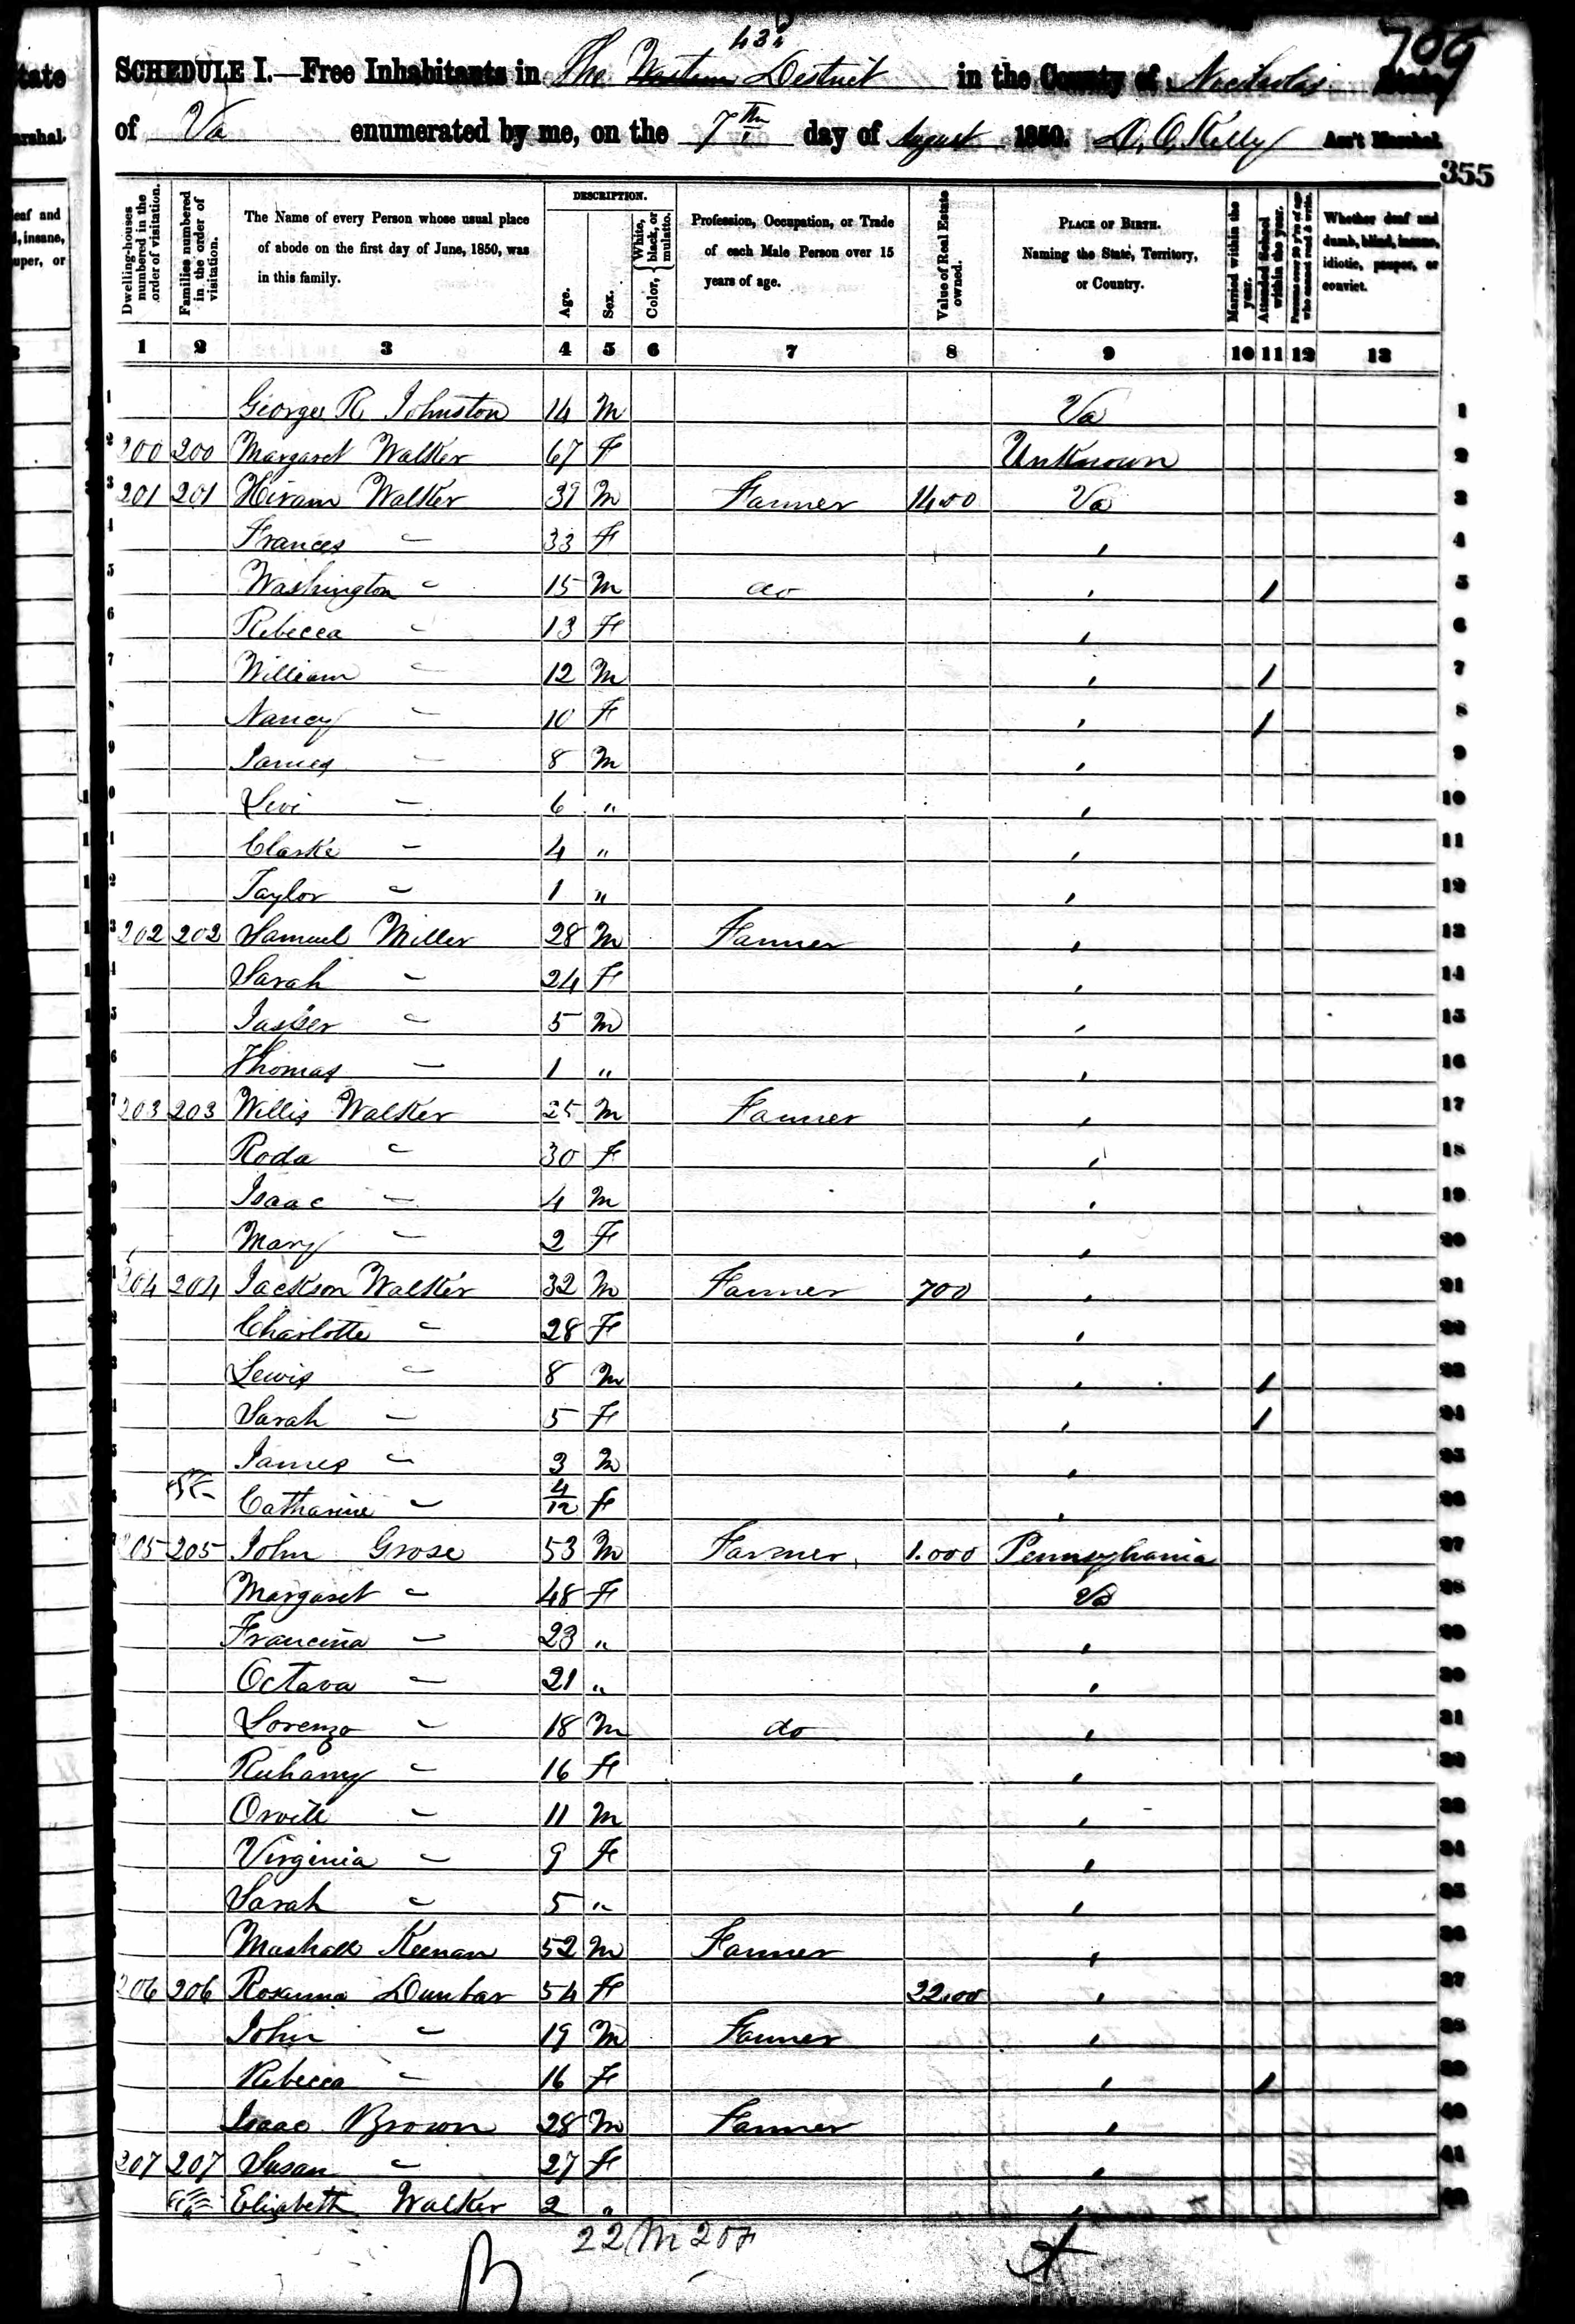 tate
arshal.
eaf and
l, insane,
uper, or
43d
709
SCHEDULE I.—Free Inhabitants in The Western District in the County of Nicholas State
of Va enumerated by me, on the 7th day of August 1850. Ass't Marshal.
355
Dwelling-houses numbered in the order of visitation.
Families numbered in the order of visitation.
The Name of every Person whose usual place of abode on the first day of June, 1850, was in this family.
DESCRIPTION.
Age.
Sex.
Color, { White, black, or mulatto.
Profession, Occupation, or Trade of each Male Person over 15 years of age.
Value of Real Estate owned.
PLACE OF BIRTH.
Naming the State, Territory, or Country.
Married within the year.
Attended School within the year.
Persons over 20 y'rs of age who cannot read & write.
Whether deaf and dumb, blind, insane, idiotic, pauper, or convict.
1 2 3 4 5 6 7 8 9 10 11 12 13
1 George R Johnston 14 M Va 1
2 200 200 Margaret Walker 67 F Unknown 2
3 201 201 Hiram Walker 39 M Farmer 1400 Va 3
4 Frances " 33 F " 4
5 Washington " 15 M do " 1 5
6 Rebecca " 13 F " 6
7 William " 12 M " 1 7
8 Nancy " 10 F " 1 8
9 James " 8 M " 9
10 Levi " 6 " " 10
11 Clarke " 4 " " 11
12 Taylor " 1 " " 12
13 202 202 Samuel Miller 28 M Farmer " 13
14 Sarah " 24 F " 14
15 Jasper " 5 M " 15
16 Thomas " 1 " " 16
17 203 203 Willis Walker 25 M Farmer " 17
Roda " 30 F " 18
19 Isaac " 4 M " 19
Mary " 2 F " 20
204 204 Jackson Walker 32 M Farmer 700 " 21
Charlotte " 28 F " 22
Lewis " 8 M " 1 23
Sarah " 5 F " 1 24
James " 3 M " 25
Catharine " 4/12 F " 26
205 205 John Grose 53 M Farmer 1.000 Pennsylvania 27
Margaret " 48 F Va 28
Francina " 23 " " 29
Octava " 21 " " 30
Lorenzo " 18 M do " 31
Ruhamy " 16 F " 32
Orvill " 11 M " 33
Virginia " 9 F " 34
Sarah " 5 " " 35
Mashall Keenan 52 M Farmer " 36
206 206 Roxanna Dunbar 54 F 2200 " 37
John " 19 M Farmer " 38
Rebecca " 16 F " 1 39
Isaac Brown 28 M Farmer " 40
207 207 Susan " 27 F " 41
Elizabeth Walker 2 " " 42
22 M 20 F